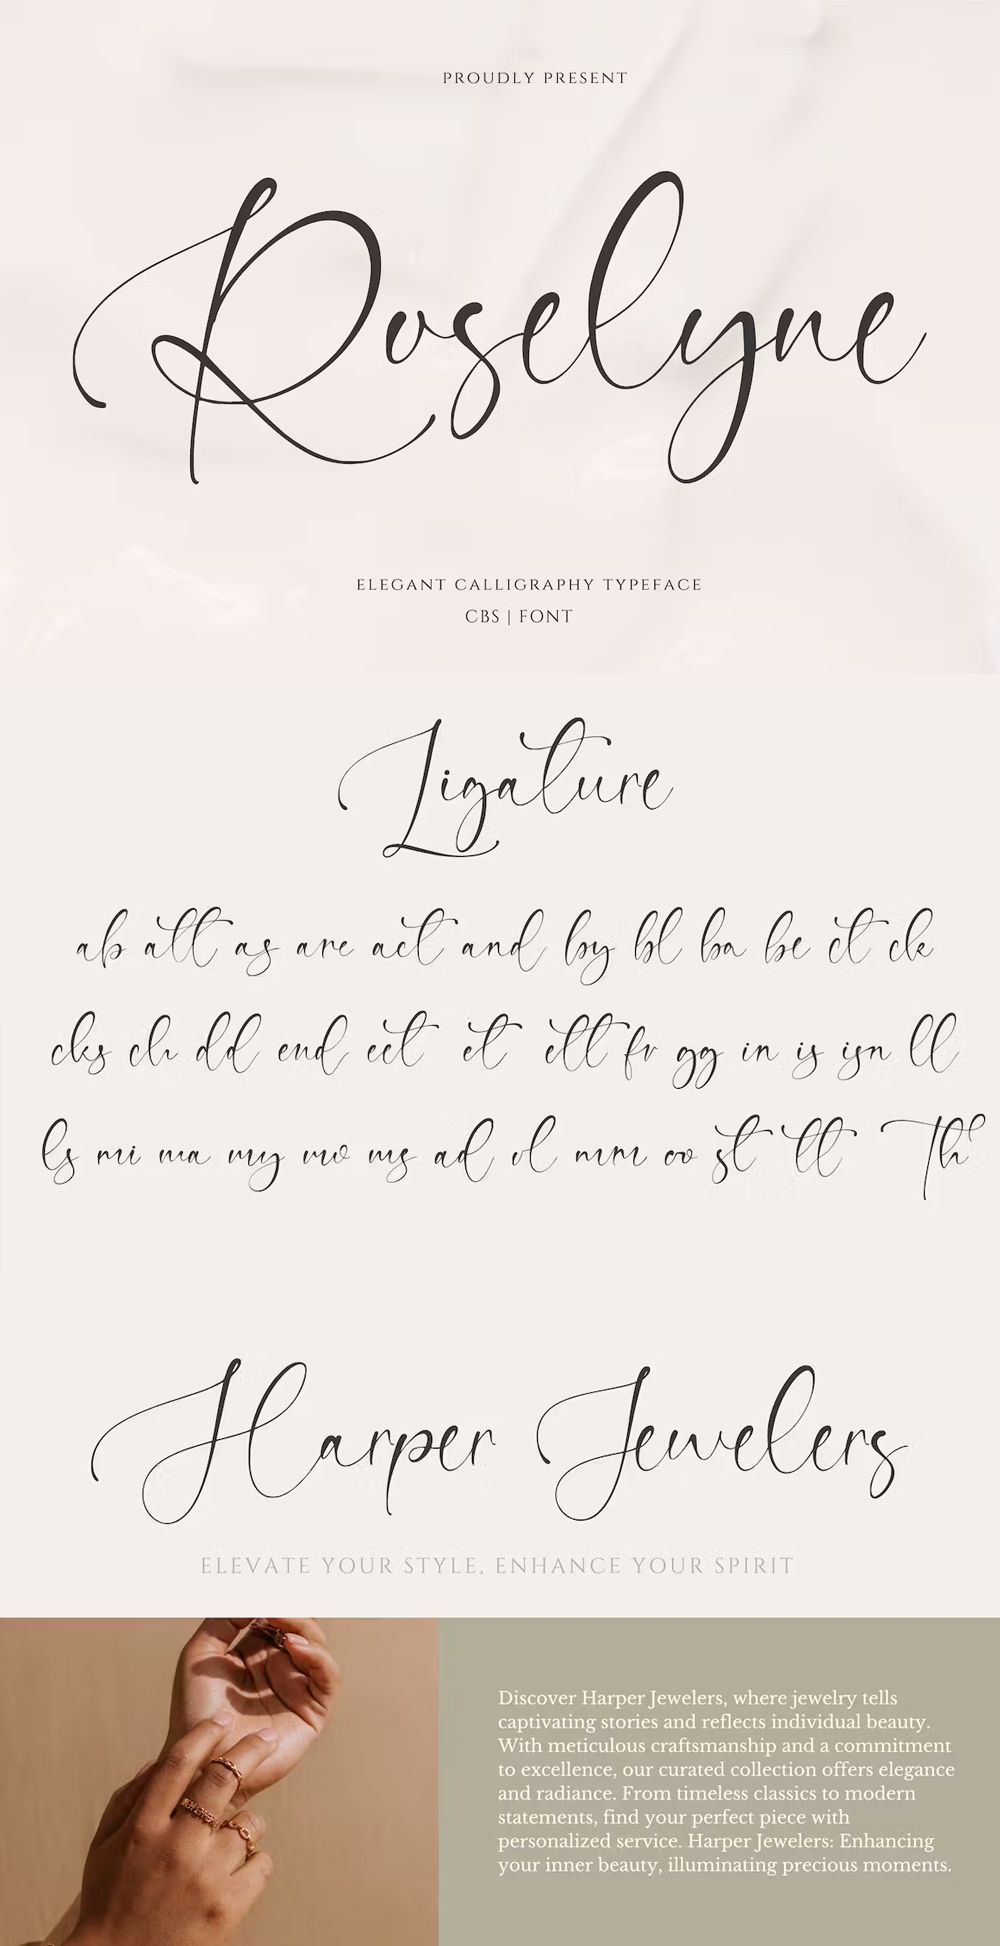 PROUDLY PRESENT
Roselyne
ELEGANT CALLIGRAPHY TYPEFACE
CBS | FONT
Ligature
ab att as are act and by bl ba be ct ck
cks ch dd end eet et ett fr gg in is isn ll
ls mi ma my mo ms ad ol mm oo st tt Th
Harper Jewelers
ELEVATE YOUR STYLE, ENHANCE YOUR SPIRIT
Discover Harper Jewelers, where jewelry tells
captivating stories and reflects individual beauty.
With meticulous craftsmanship and a commitment
to excellence, our curated collection offers elegance
and radiance. From timeless classics to modern
statements, find your perfect piece with
personalized service. Harper Jewelers: Enhancing
your inner beauty, illuminating precious moments.